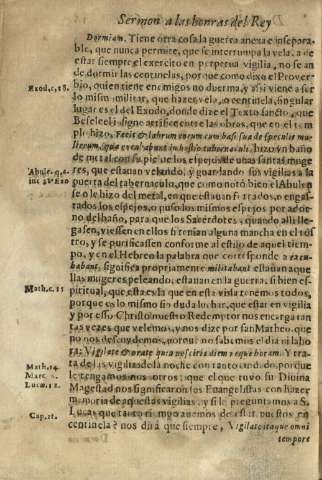 Sermon a las honras del Rey
Dormiam. Tiene otra cosa la guerra anexa e insepora-
ble, que nunca permite, que se interrumpa la vela, a de
estar siempre el exercito en perpetua vigilia, no se an
de dormir las centinelas, porque como dixo el Prover-
Exod, c, 18. bio, quien tiene enemigos no duerma, y assi viene a ser
lo mism militar, que hazer vela, o centinela, singular
lugar es el del Exodo, donde dize el Texto sancto, que
Beseleel insigne artifice entre las obras, que en el tem
plo hizo, Fecit & labrum æneum cum basi sua de speculis mu-
lierum, quæ excubabant in hostio tabernaculi, hizo vn baño
de metal con su pie de los espejos de vnas santas muge
Abule. q, 2. res, que estauan velando, y guardando sus vigilias a la
puerta del tabernaculo, que como notò bien el Abulen
se o le hizo del metal, en que estauan los espejos, o puso los mismos espejos por ador-
no del baño, para que los Sacerdotes, quando alli lle-
gasen, viessen en ellos si tenian alguna mancha en el ros
tro, y se purificassen conforme al estilo de aquel tiem-
po, y en el Hebreo la palabra que corresponde a excu-
babant, significa propriamente militabant estauan aque
llas mugeres peleando, estauan en la guerra, si bien es-
Math. c. 25 piritual, que esta es la que en esta vida tenemos todos,
porque es lo mismo sin duda lo bar, que estar en vigilia
y por esso Christo nuestro Redemptor nos encarga tan
tas vezes que velemos, y nos dize por san Matheo. que
no nos descuydemos, porque no sabemos el dia ni la ho
ra: Vigilate & orate quia nescitis diem neque horam. Y tra-
Math. 24. ta de las vigilias de la noche con tanto cuidado, porque
Marc. le tengamos nosotros: que el tuvo su Diuina
Luc. 12. Magestad nos significaron los Euangelistas con hazer
memoria de aquestas vigilias, y si le preguntamos a S.
Cap, 21. Lucas que tanto tiempo auemos de estar puestos en
centinela? nos dirá que siempre, Vigilate itaque omni
tempore